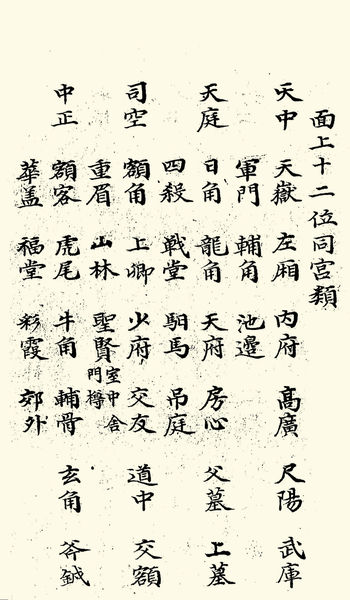 面上十二位同宫類
天中 天嶽 左厢 内府 髙廣 尺陽 武庫
軍門 輔角 池邊
天庭 日角 龍角 天府 房心 父墓 上墓
四殺 戰堂 馹馬 吊庭
司空 額角 上卿 少府 交友 道中 交額
重眉 山林 聖賢 室中舍
門樽
中正 額客 虎尾 牛角 輔骨 玄角
華盖 福堂 彩霞 郊外